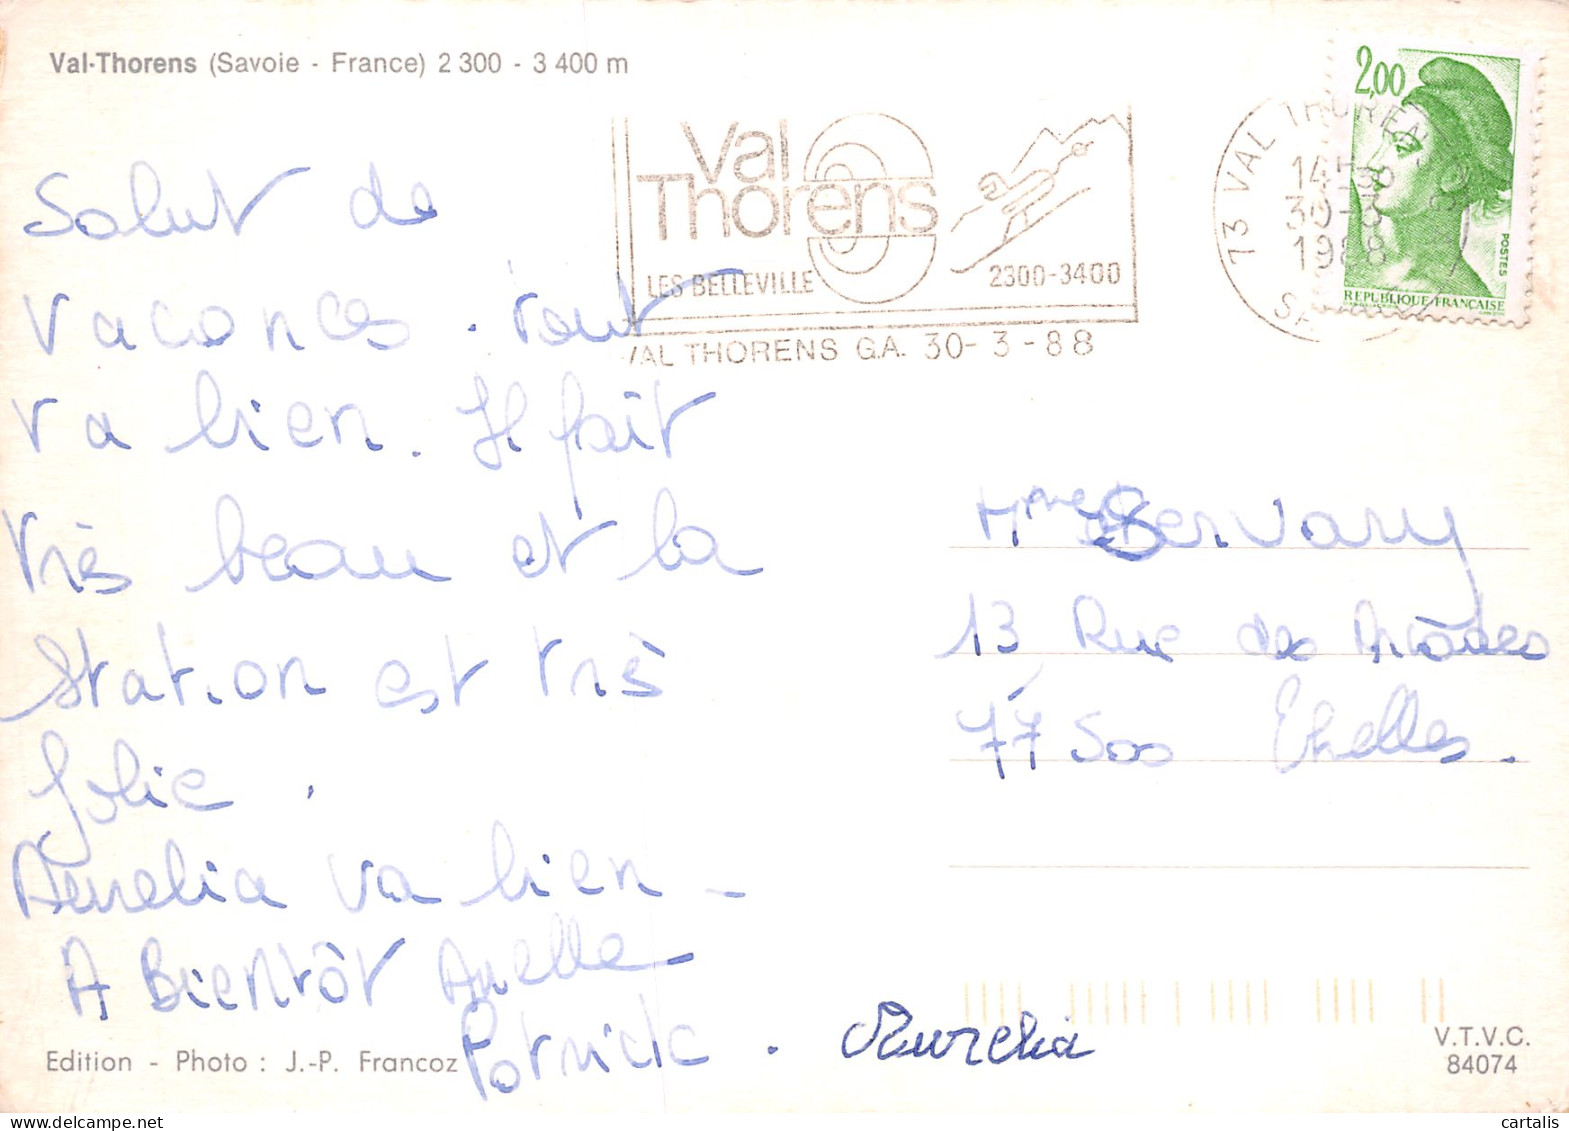 Val-Thorens (Savoie - France) 2 300 - 3 400 m
Val
Thorens
LES BELLEVILLE
2300-3400
VAL THORENS G.A. 30-3-88
73 VAL THORENS
30-3
1988
2,00
POSTES
REPUBLIQUE FRANÇAISE
Salut de
vacances. Tout
va bien. Il fait
très beau et la
station est très
jolie.
Aurelia va bien -
A Bientôt
Patrick. Aurelia
Mme Servary
13 Rue des
77500 Chelles.
Edition - Photo : J.-P. Francoz
V.T.V.C.
84074
cartalis